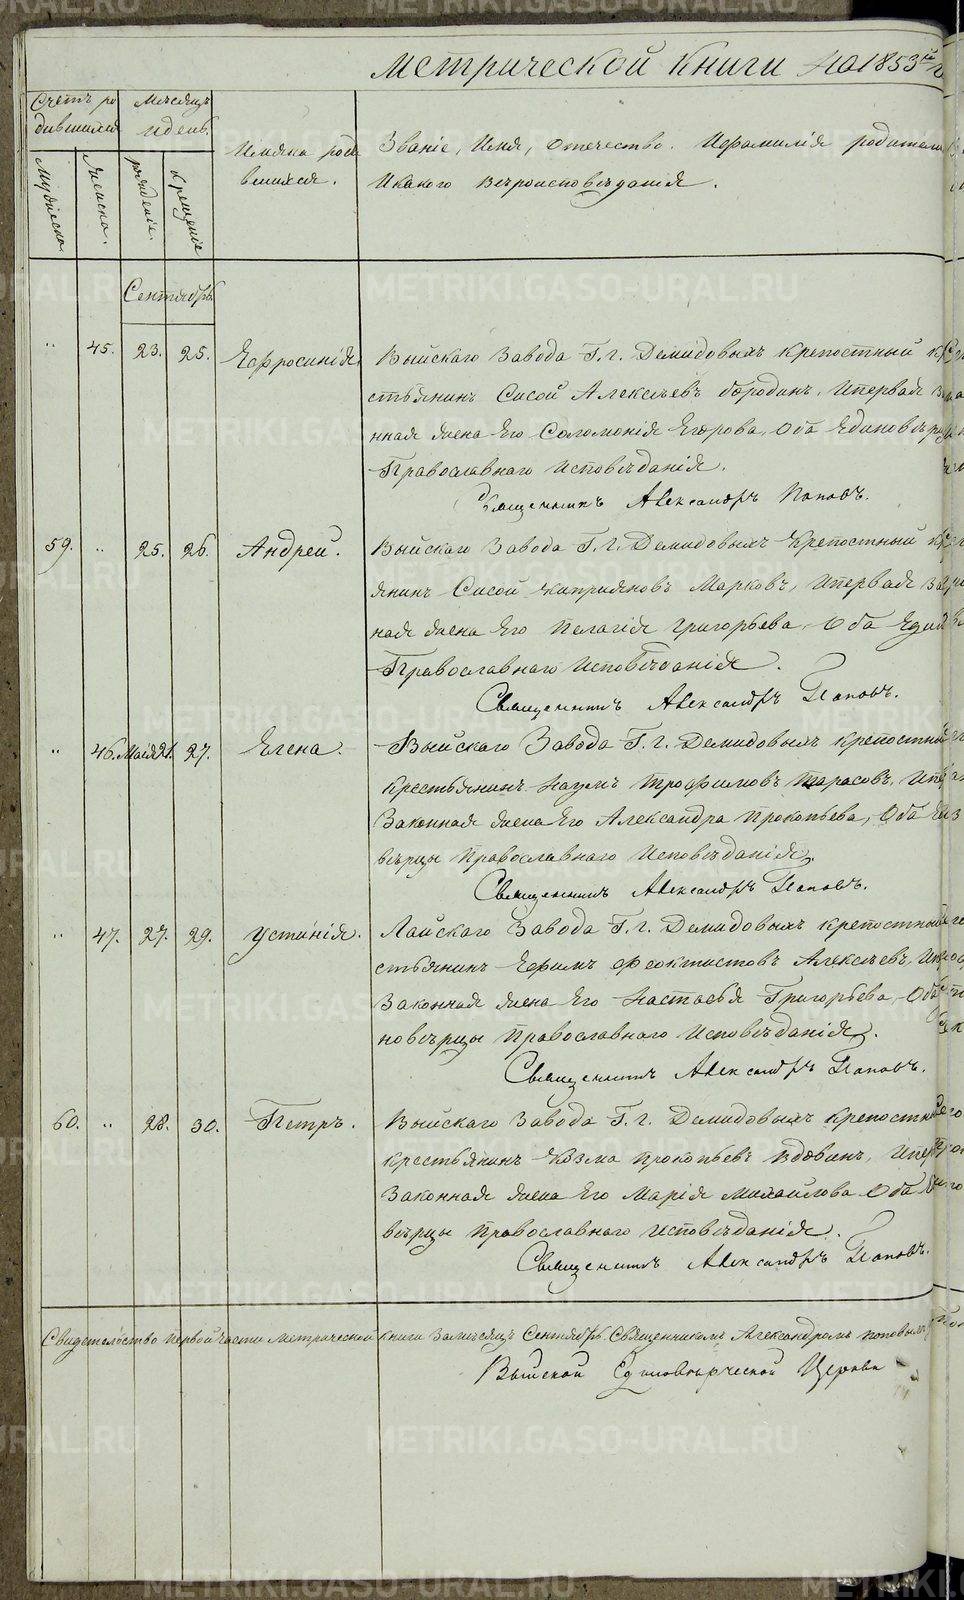 Метрической книги на 1853й
Счетъ ро
дившихся
Мѣсяцъ
и день.
Имяна роди
вшихся.
Званіе, Имя, отечество. И фамилія родителей
И какого вѣроисповѣданія.
Мужеска.
Женска.
рожденія.
крещеніе
Сентябрь
„ 45. 23. 25. Ефросинія, Выйскаго Завода Г. г. Демидовыхъ крепостный кре
стьянинъ Сисой Алексѣевъ бородинъ, И первая зако
нная жена Его Соломонія Егорова, Оба Единовѣрцы
Православнаго исповѣданія.
Священникъ Александръ Поповъ.
59. „ 25. 26. Андрей. Выйскаго Завода Г. Г. Демидовыхъ Крепостный крест
янинъ Сисой Киприяновъ Марковъ, И первая зако
ная жена Его Пелагія Григорьева, Оба Един
Православнаго Исповѣданія.
Священникъ Александръ Поповъ.
„ 46. Маія 21. 27. Елена. Выйскаго Завода Г. г. Демидовыхъ крепостный
крестьянинъ Наумъ Трофимовъ Тарасовъ, И пер
Законная жена Его Александра Прокопьева, Оба Еди
вѣрцы Православнаго Исповѣданія.
Священникъ Александръ Поповъ.
„ 47. 27. 29. Устинія. Лайскаго Завода Г. г. Демидовыхъ крепостный
стьянинъ Ефимъ Феоктистовъ Алексѣевъ, И пер
Законная жена Его Настасья Григорьева, Оба
новѣрцы Православнаго Исповѣданія.
Священникъ Александръ Поповъ.
60. „ 28. 30. Петръ. Выйскаго Завода Г. г. Демидовыхъ Крепостный
крестьянинъ Козма Прокопьевъ Вдовинъ, И пер
Законная жена Его Марія Михайлова Оба Ед
вѣрцы Православнаго исповѣданія.
Священникъ Александръ Поповъ.
Свидетельство Первой Части Метрической книги За мѣсяцъ Сентябрь. Священникомъ Александромъ Поповымъ
Выйской Единовѣрческой Церкви